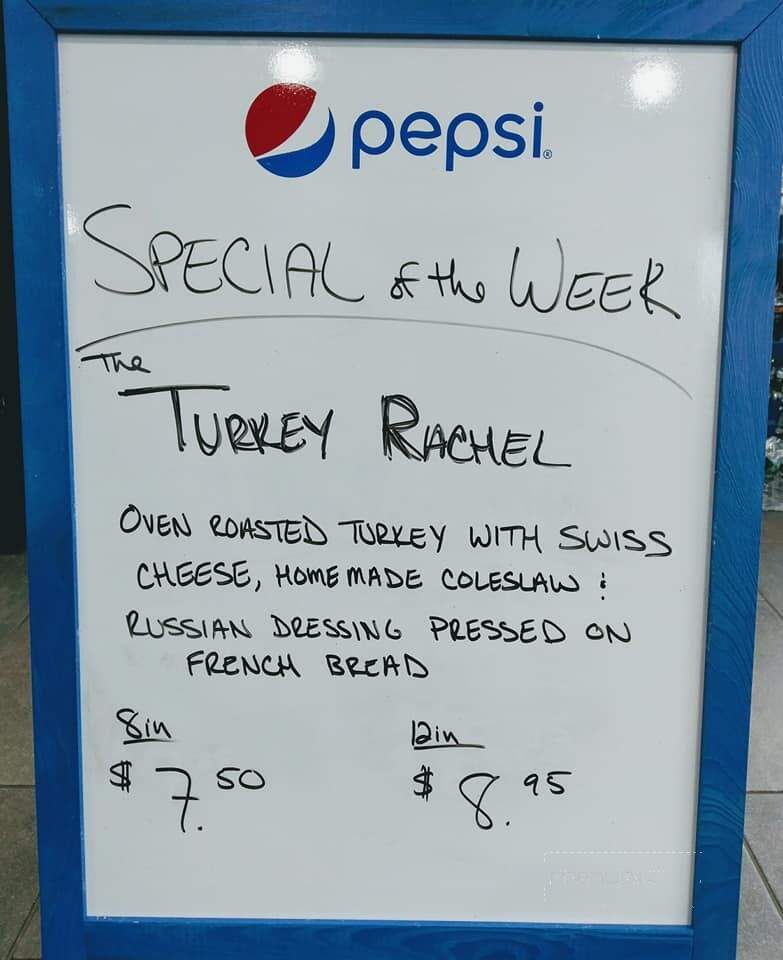 pepsi®
SPECIAL of the WEEK
The
TURKEY RACHEL
OVEN ROASTED TURKEY WITH SWISS
CHEESE, HOMEMADE COLESLAW &
RUSSIAN DRESSING PRESSED ON
FRENCH BREAD
8in 12in
$7.50 $8.95